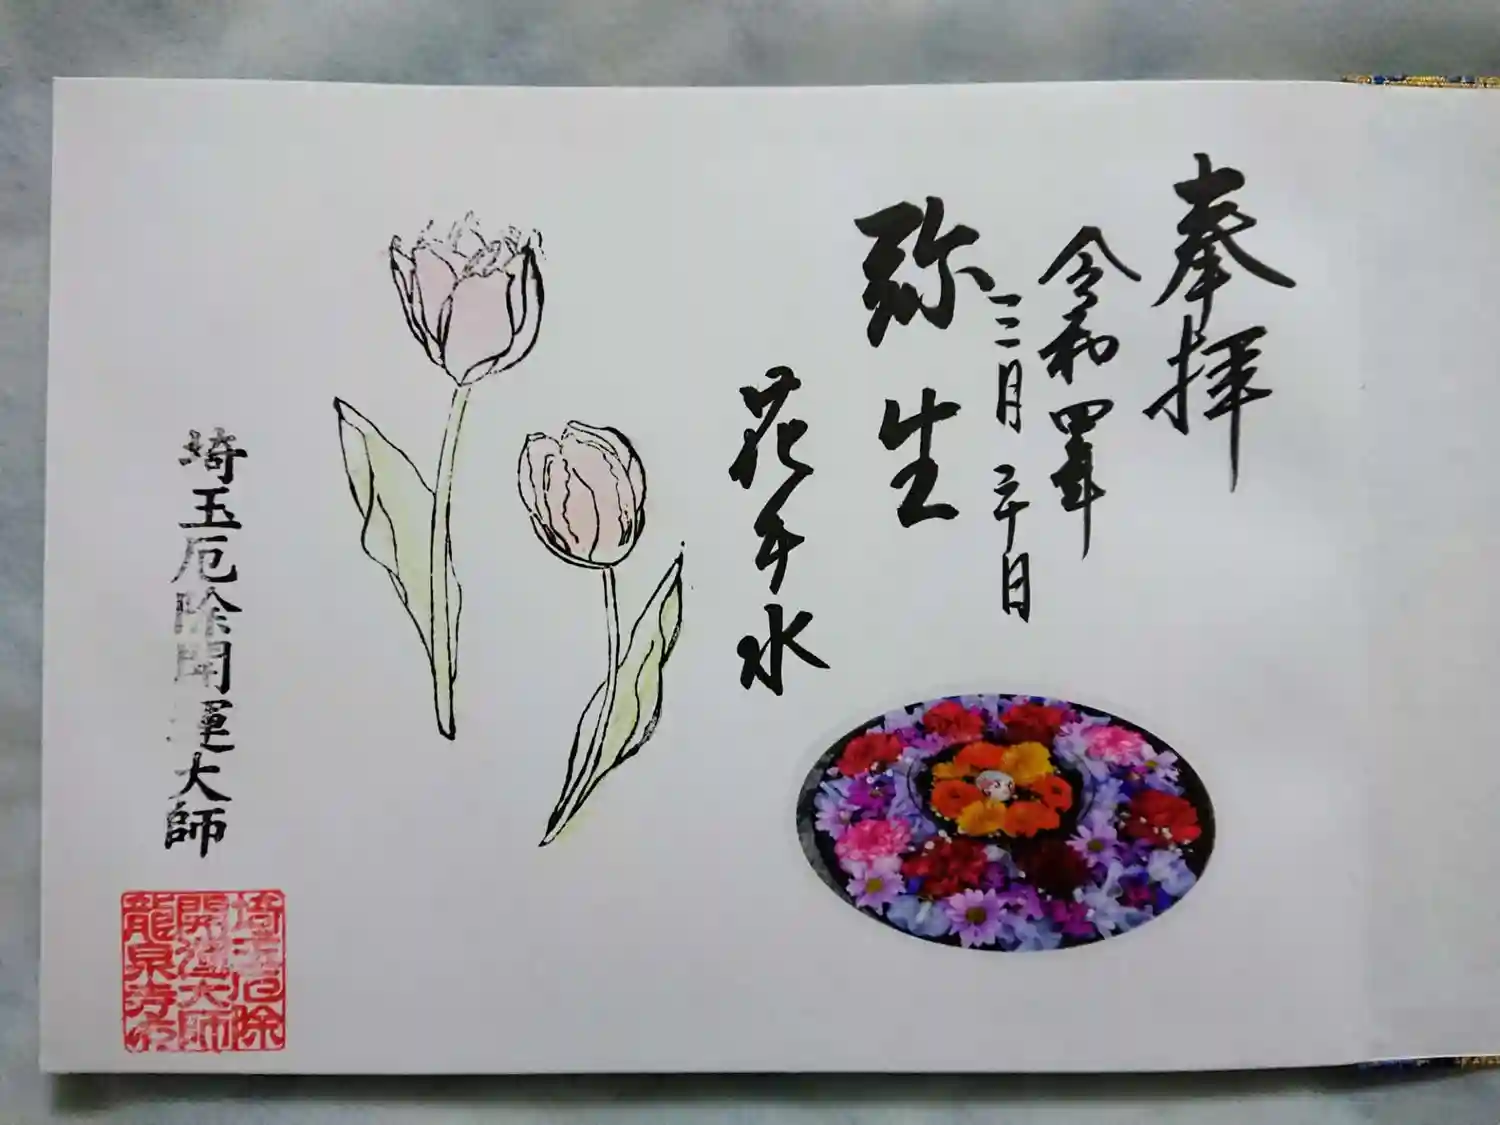 奉拝
令和四年
三月二十日
弥生
花手水
埼玉厄除開運大師
埼玉厄除
開運大師
龍泉寺